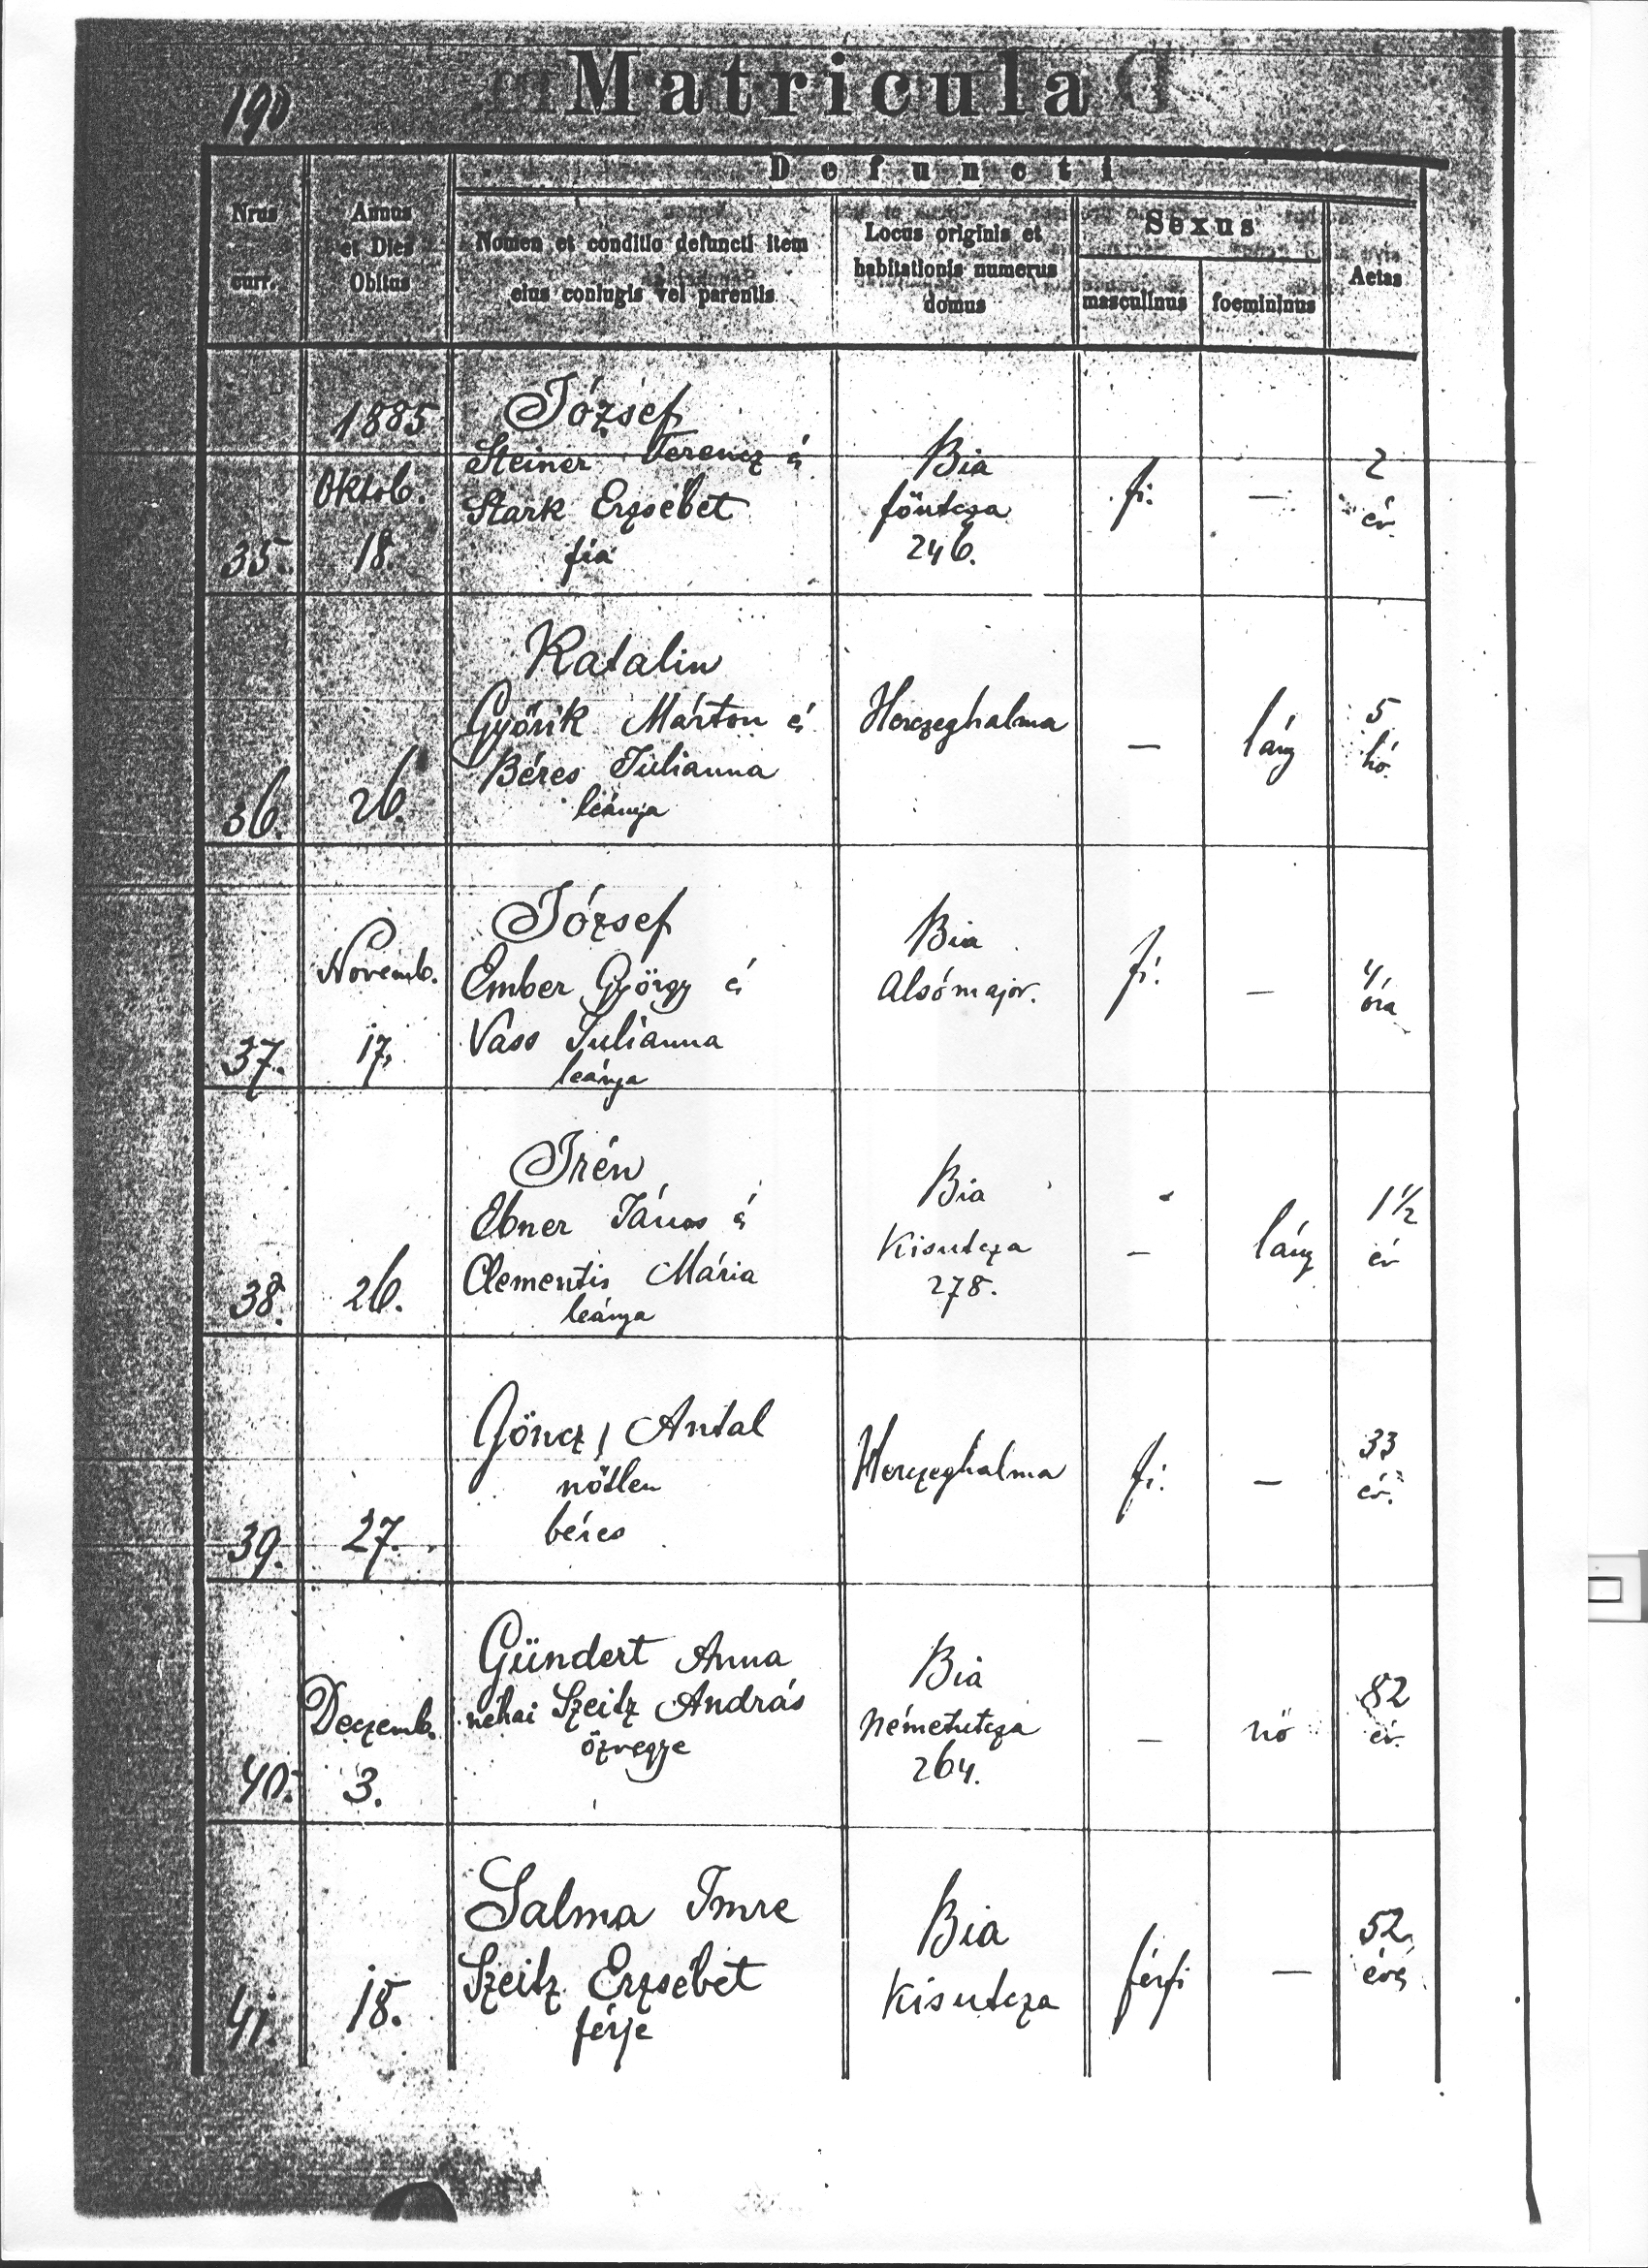 190
Matricula
Defuncti
Nrus curr.
Annus et Dies Obitus
Nomen et conditio defuncti item eius coniugis vel parentis
Locus originis et habitationis numerus domus
Sexus
masculinus
foemininus
Aetas
35.
1885
Oktob.
18.
József
Steiner Ferencz é
Stark Erzsébet
fia
Bia
főutcza
246.
fi.
—
2
év.
36.
26.
Katalin
Győrik Márton é
Béres Julianna
leánya
Herczeghalma
—
lány
5
hó.
37.
Novemb.
17.
József
Ember György é
Vass Julianna
leánya
Bia
Alsómajor.
fi.
—
4
óra
38.
26.
Irén
Ebner János é
Clementis Mária
leánya
Bia
Kisutcza
278.
—
lány
1½
év
39.
27.
Göncz Antal
nőtlen
béres
Herczeghalma
fi.
—
33
év.
40.
Deczemb.
3.
Gündert Anna
néhai Szeitz András
özvegye
Bia
Németutcza
264.
—
nő
82
év.
41.
18.
Salma Imre
Szeitz Erzsébet
férje
Bia
Kisutcza
férfi
—
52
éves